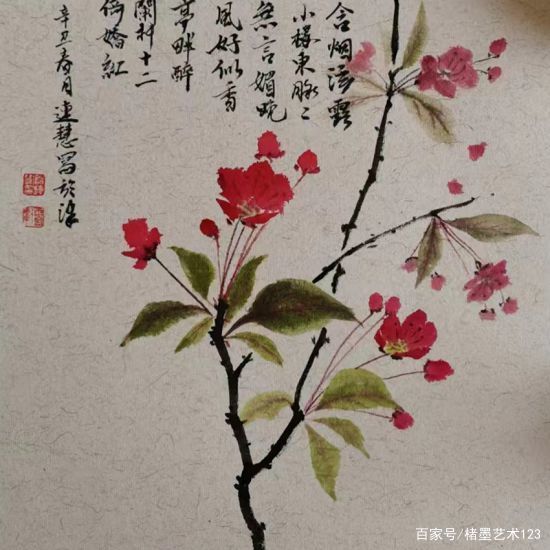 含烟泣露
小楼東脉々
無言媚晚
風好似香
亭畔醉
闌杆十二
倚嬌紅
辛丑春月連慧寫於津
百家号/楮墨艺术123